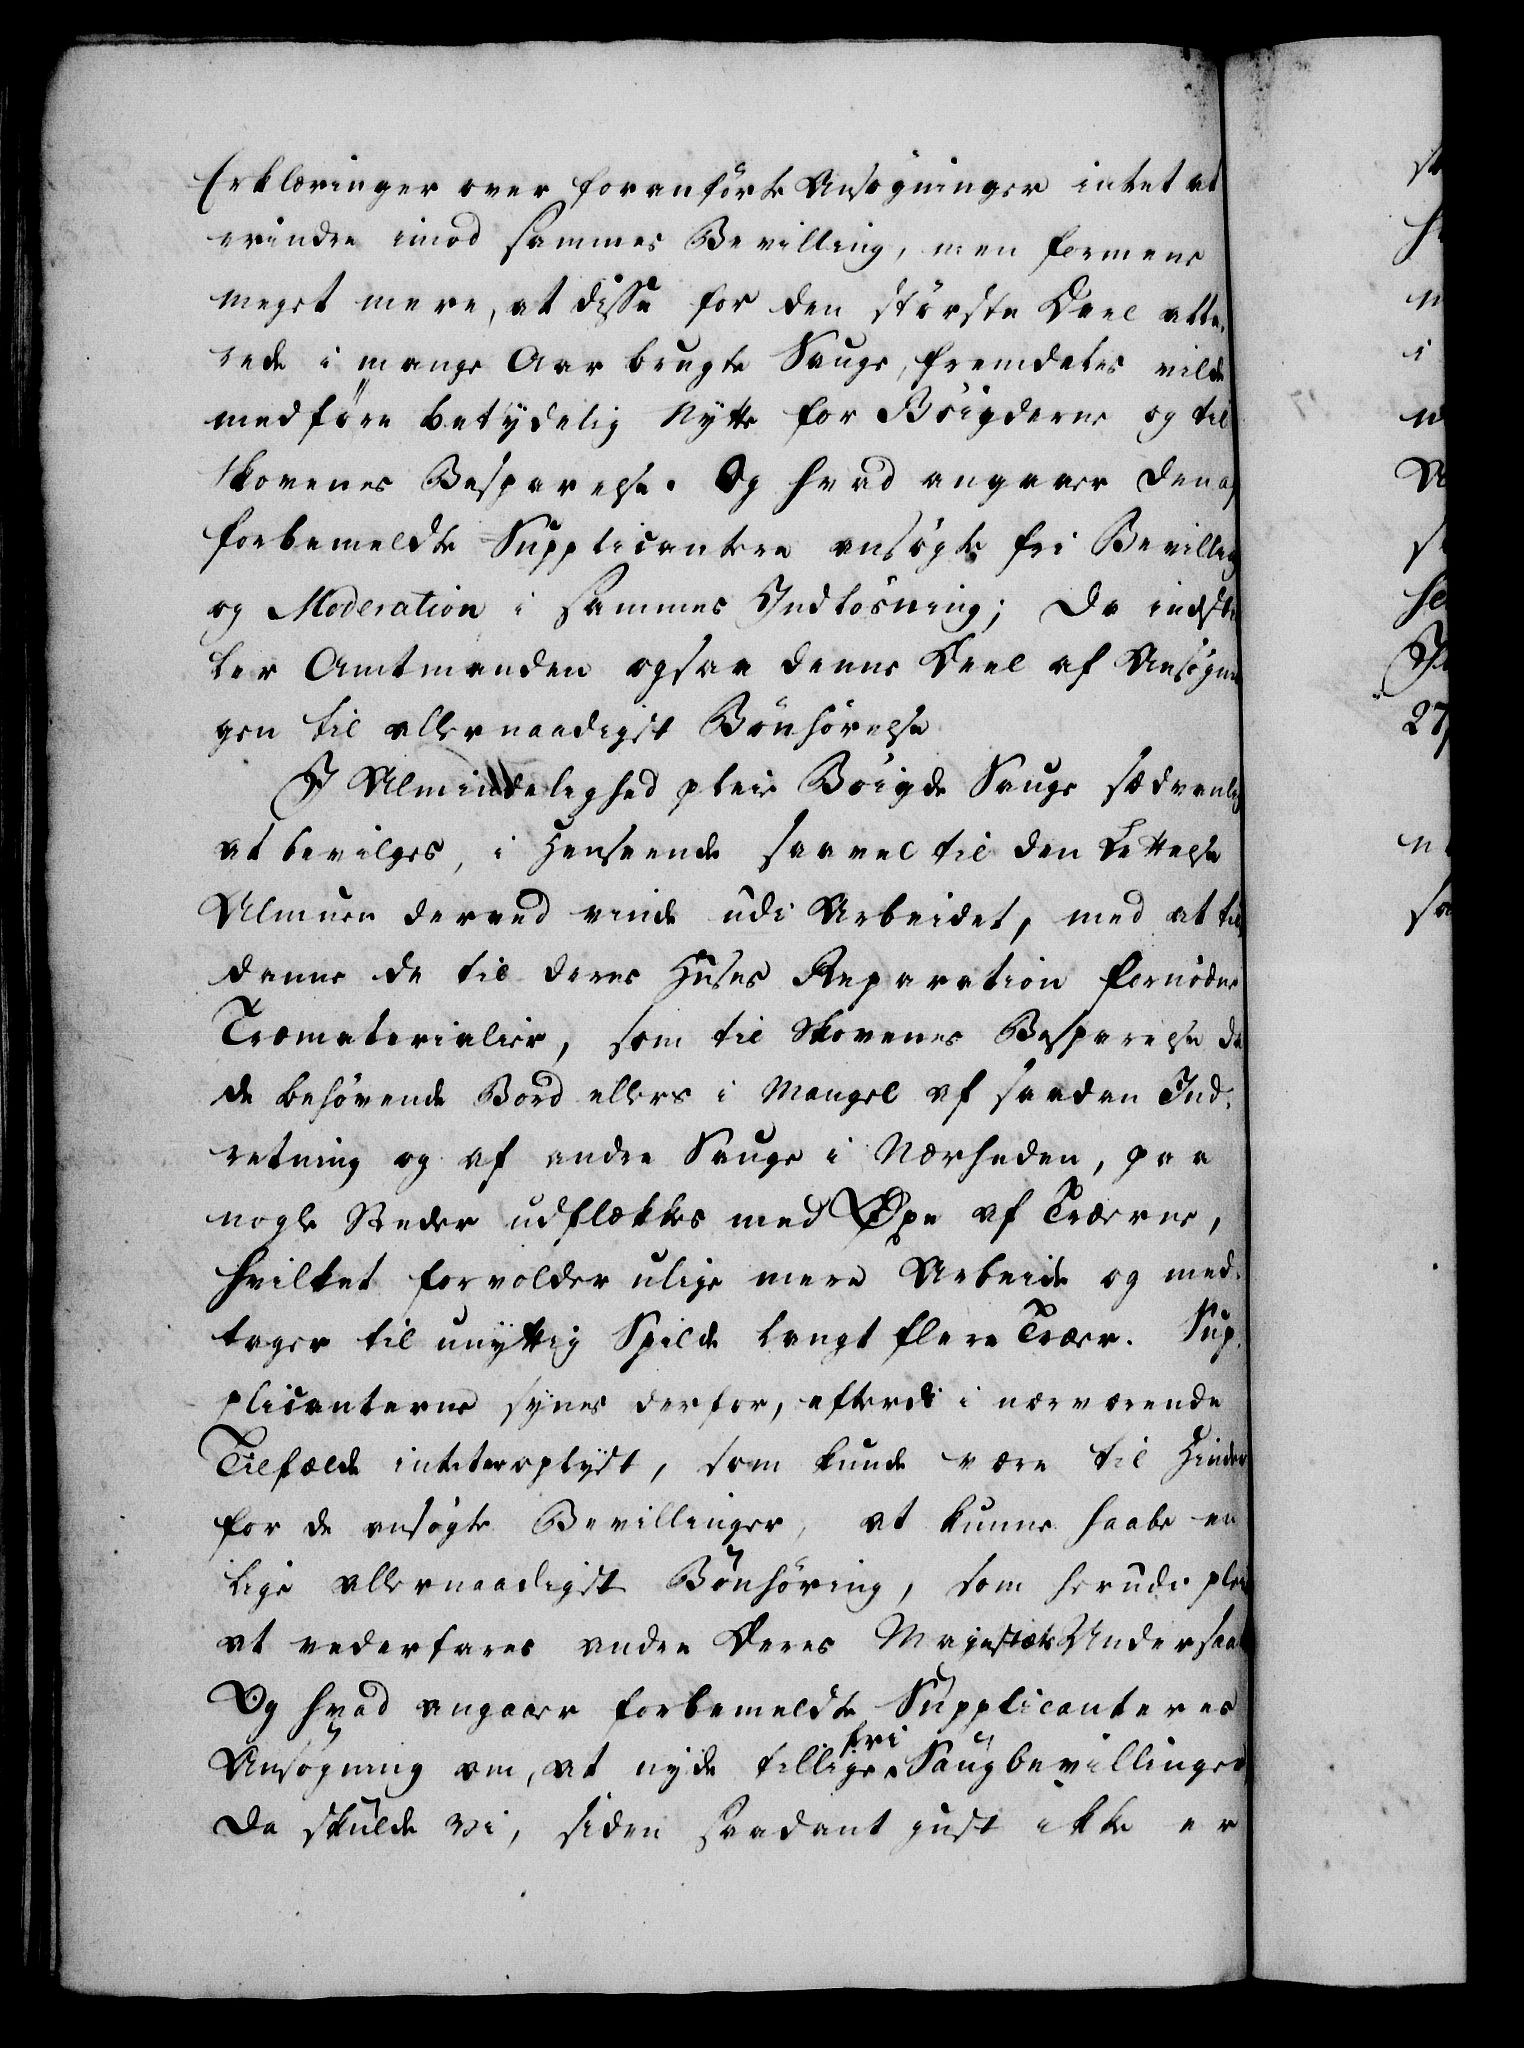 Erklæringer over foranførte Ansøgninger intet at
erindre imod sammes Bevilling, men formene
meget mere, at disse for den største Deel alle,,
rede i mange Aar brugte Sauge, fremdeles vilde
medføre betydelig Nytte for Böigderne og til
Skovenes Besparelse. Og hvad angaaer den af
forbemeldte Supplicantere ansøgte fri Bevilling
og Moderation i sammes Indløsning; Da indstil
ler Amtmanden ogsaa denne Deel af Ansøgnin
gen til allernaadigst Bönhørelse
I Almindelighed pleie Böigde Sauge sædvanlig
at bevilges, i Henseende saavel til den Lettelse
Almuen derved vinde udi Arbeidet, med at til
danne de til deres Huses Reparation fornødne
Træmaterialier, som til Skovenes Besparelse da
de behøvende Bord ellers i Mangel af saadan Ind,,
retning og af andre Sauge i Nærheden, paa
nogle Steder udflækkes med Øxe af Træerne,
hvilket forvolder ulige mere Arbeide og med,,
tager til unyttig Spilde langt flere Træer. Sup,,
plicanterne synes derfor, efterdi i nærværende
Tilfælde intet er oplyst, som kunde være til Hinder
for de ansøgte Bevillinger, at kunne haabe en
lige allernaadigst Bönhøring, som herudi pleie
at vederfares andre Deres Majestæts Undersaat
Og hvad angaaer forbemeldte Supplicanteres
Ansøgning om, at nyde tillige fri Saugbevillinger
Da skulde vi, siden saadant just ikke er